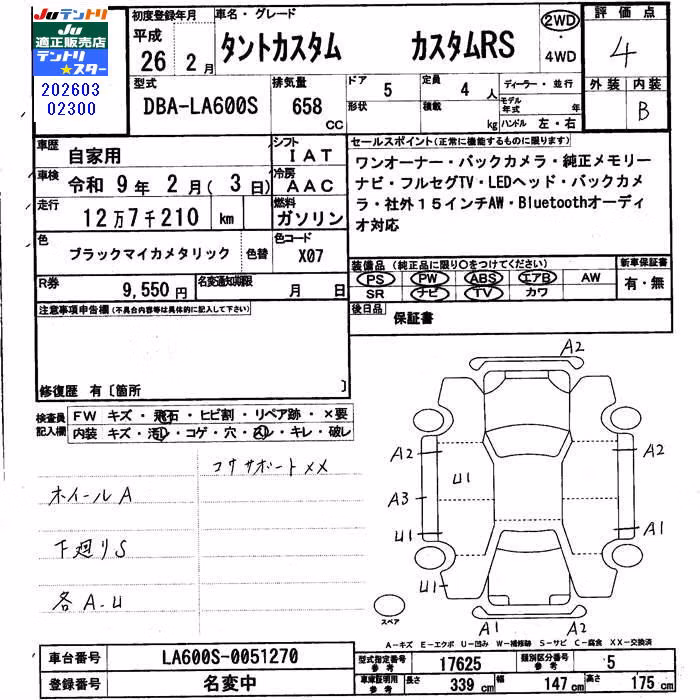 Juテントリ
Ju
適正販売店
テントリ
★スター
202603
02300
初度登録年月
平成
26年 2月
車名・グレード
タントカスタム カスタムRS
2WD
・
4WD
評価点
4
外装 内装
B
型式
DBA-LA600S
排気量
658
CC
ドア
5
形状
定員
4人
積載
kg
ディーラー・並行
モデル年式 年
ハンドル 左・右
車歴
自家用
シフト
IAT
車検
令和 9年 2月( 3日)
冷房
AAC
走行
12万7千210 km
燃料
ガソリン
色
ブラックマイカメタリック
色替
色コード
X07
R券
9,550円
名変通知期限
月 日
セールスポイント(正常に機能するものに限ります)
ワンオーナー・バックカメラ・純正メモリー
ナビ・フルセグTV・LEDヘッド・バックカメ
ラ・社外15インチAW・Bluetoothオーディ
オ対応
装備品(純正品に限り○をつけてください)
PS PW ABS エアB AW
SR ナビ TV カワ
新車保証書
有・無
後日品
保証書
注意事項申告欄(不具合内容等は具体的に記入して下さい)
修復歴 有〔箇所 〕
検査員
記入欄
FW キズ・飛石・ヒビ割・リペア跡・×要
内装 キズ・汚レ・コゲ・穴・スレ・キレ・破レ
コササポートXX
ホイールA
下廻りS
各A.U
A2
A2
A2
U1
A3
U1
A1
U1
A1
A2
スペア
A-キズ E-エクボ U-凹み W-補修跡 S-サビ C-腐食 XX-交換済
車台番号
LA600S-0051270
登録番号
名変中
型式指定番号
参考
17625
類別区分番号
参考
5
車庫証明用
参考
長さ 339 cm 幅 147 cm 高さ 175 cm